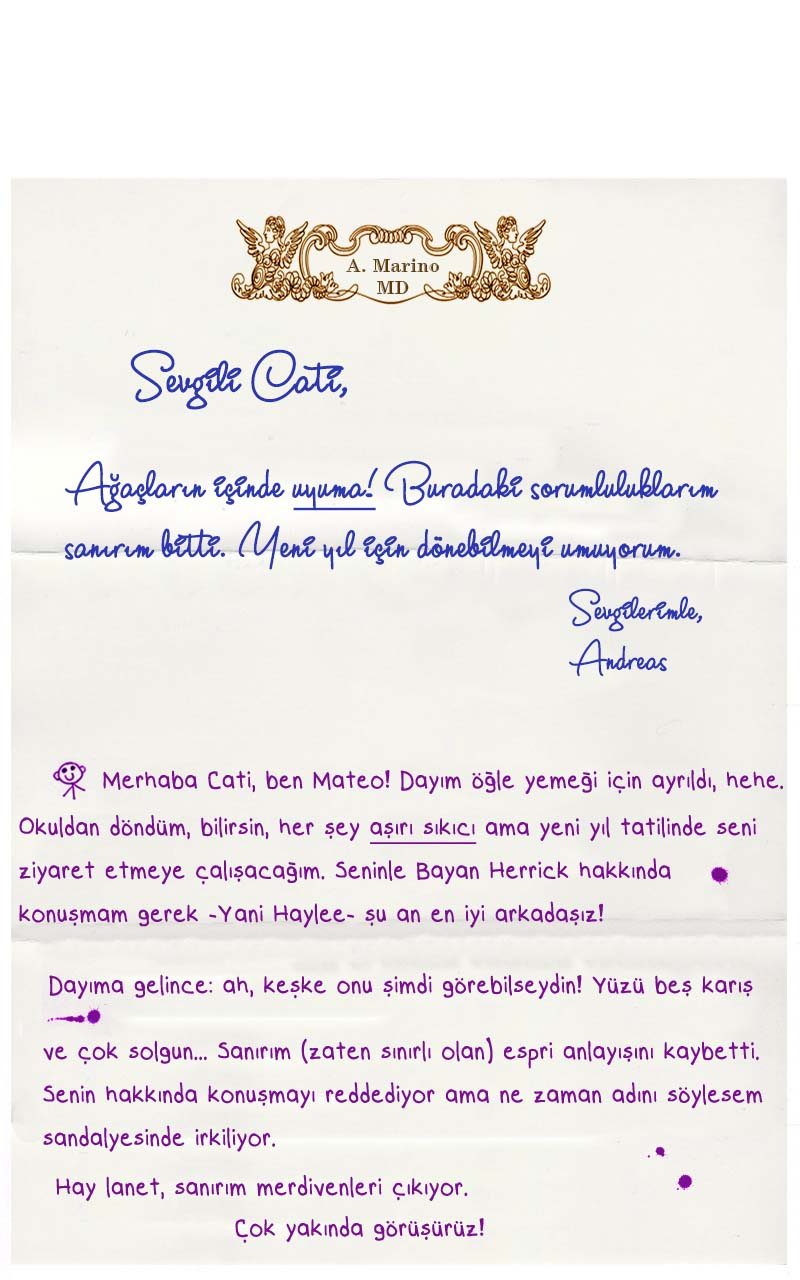 A. Marino
MD
Sevgili Cati,
Ağaçların içinde uyuma! Buradaki sorumluluklarım
sanırım bitti. Yeni yıl için dönebilmeyi umuyorum.
Sevgilerimle,
Andreas
Merhaba Cati, ben Mateo! Dayım öğle yemeği için ayrıldı, hehe.
Okuldan döndüm, bilirsin, her şey aşırı sıkıcı ama yeni yıl tatilinde seni
ziyaret etmeye çalışacağım. Seninle Bayan Herrick hakkında
konuşmam gerek -Yani Haylee- şu an en iyi arkadaşız!
Dayıma gelince: ah, keşke onu şimdi görebilseydin! Yüzü beş karış
ve çok solgun... Sanırım (zaten sınırlı olan) espri anlayışını kaybetti.
Senin hakkında konuşmayı reddediyor ama ne zaman adını söylesem
sandalyesinde irkiliyor.
Hay lanet, sanırım merdivenleri çıkıyor.
Çok yakında görüşürüz!